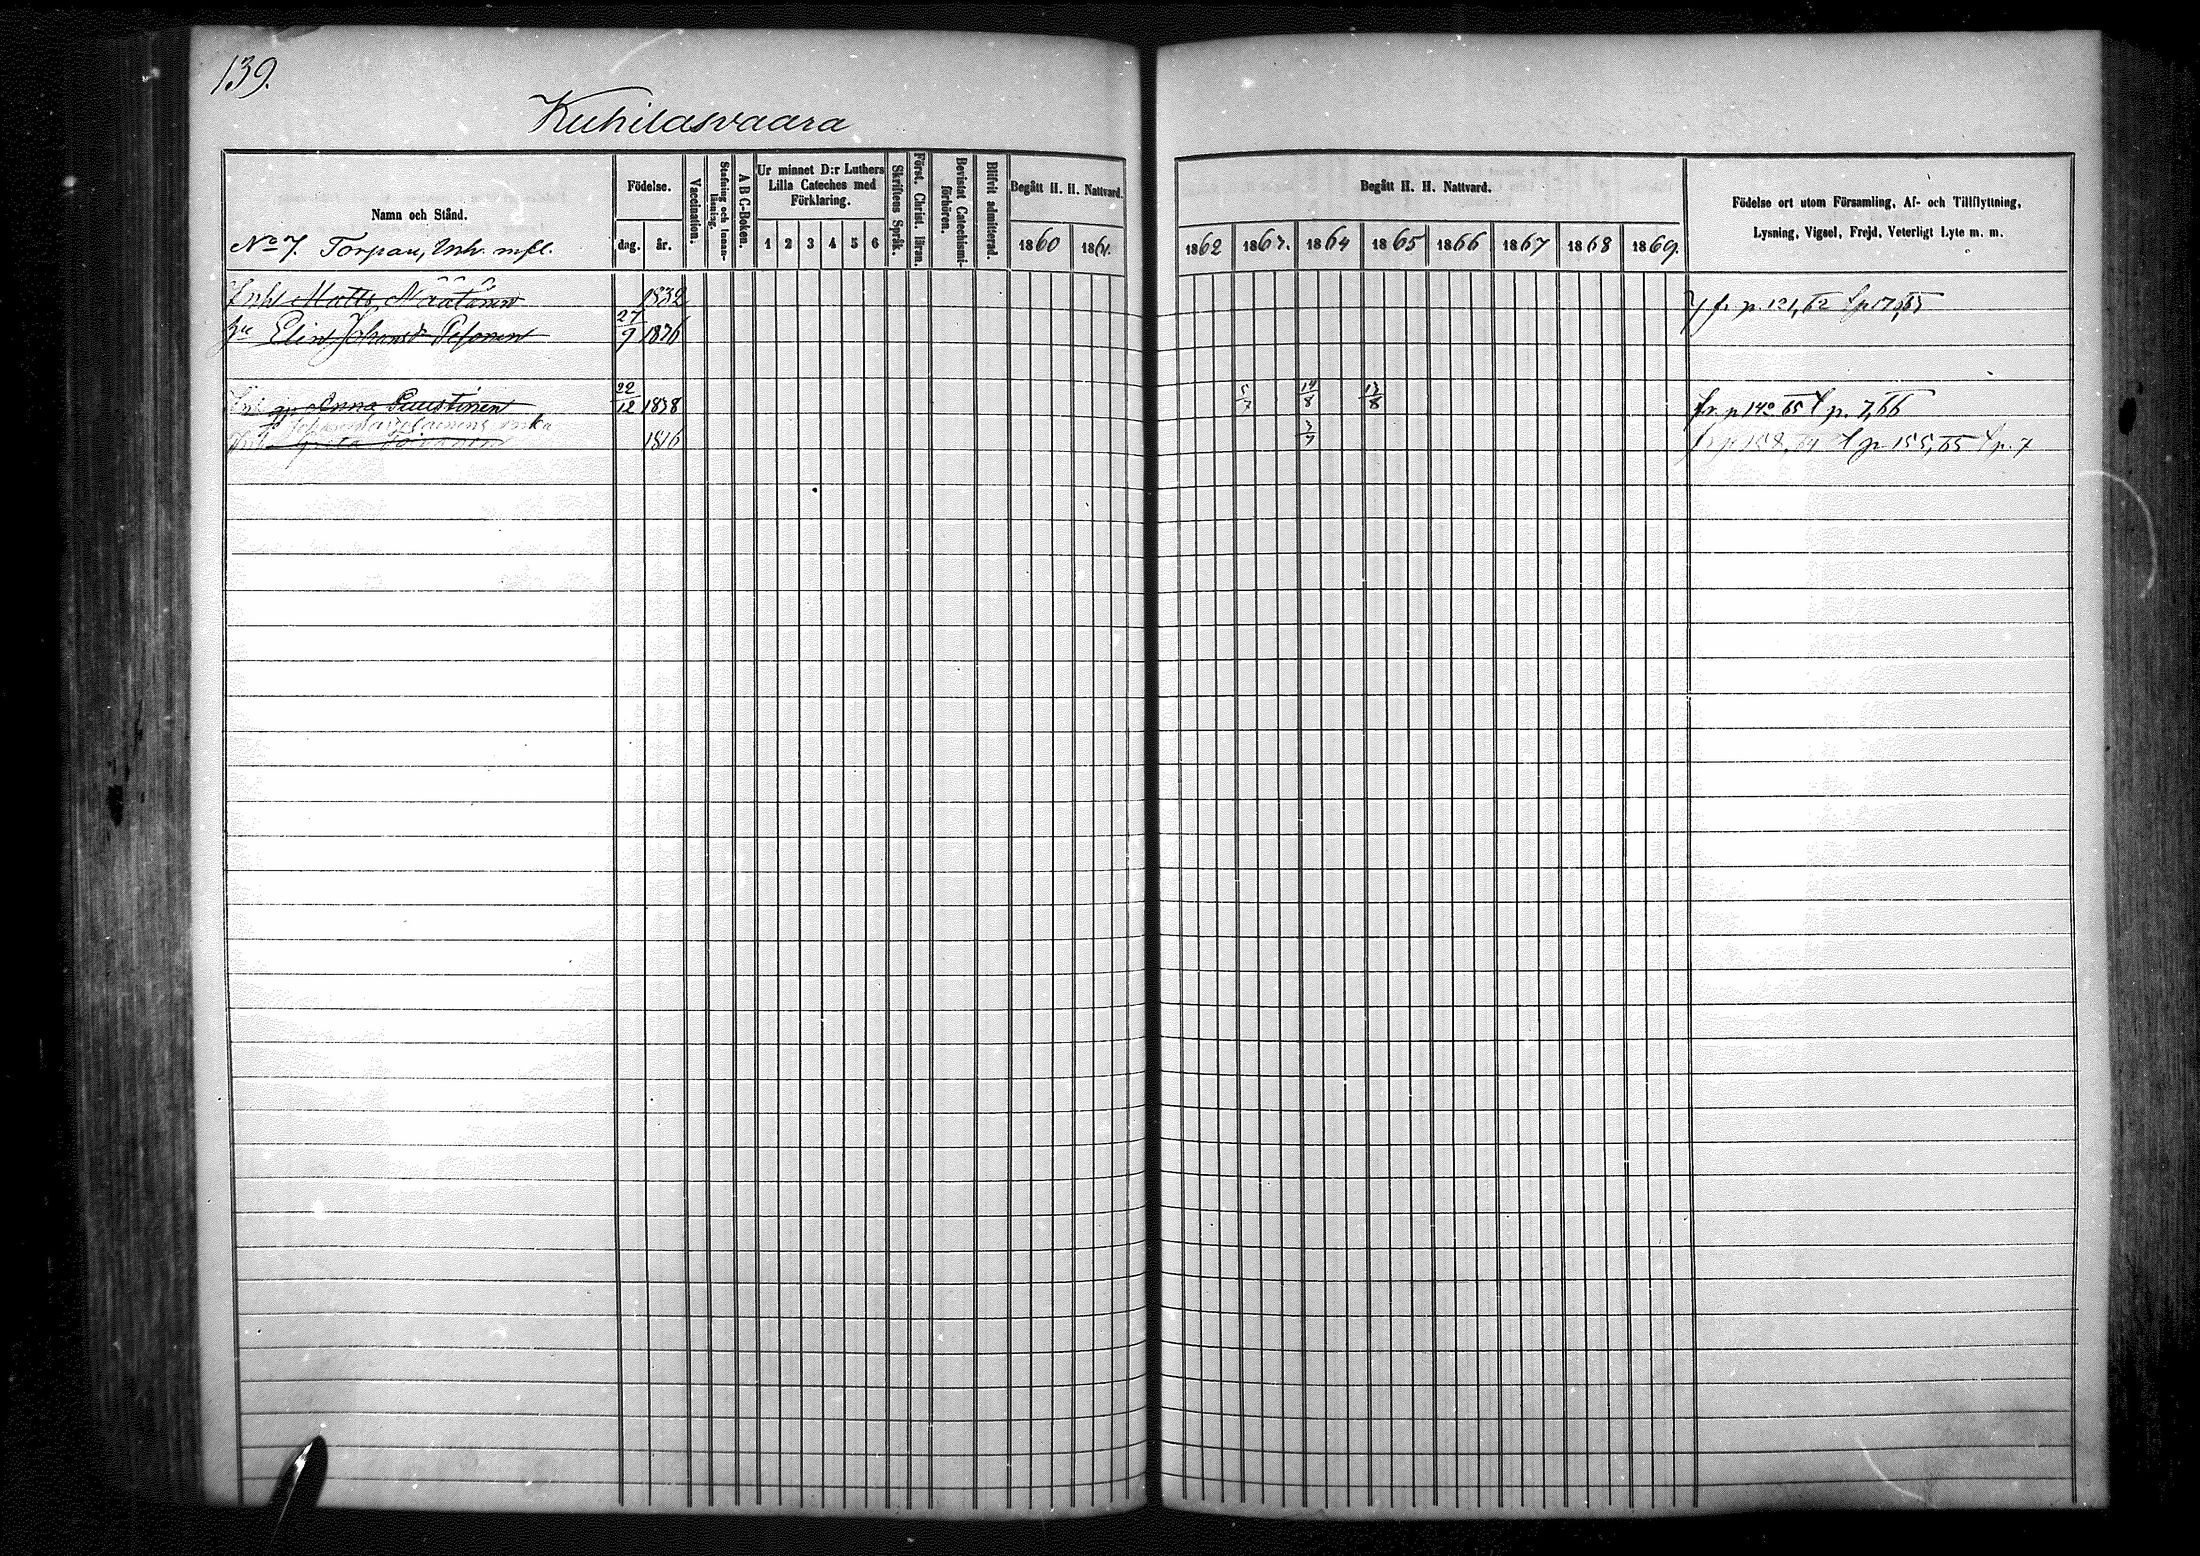 139.
Kuhilasvaara
Namn och Stånd.
No 7. Torpare, Inh. mfl.
Födelse.
dag. år.
Vaccination.
Stafning och Innanläsning.
A B C-Boken.
Ur minnet D:r Luthers Lilla Cateches med Förklaring.
1 2 3 4 5 6
Skriftens Språk.
Först. Christ. läran.
Bevistat Catechismiförhören.
Blifvit admitterad.
Begått H. H. Nattvard.
1860 1861.
Begått H. H. Nattvard.
1862 1863. 1864 1865 1866 1867 1868 1869.
Födelse ort utom Församling, Af- och Tillflyttning,
Lysning, Vigsel, Frejd, Veterligt Lyte m. m.
Inh Matts Näätänen 1832 fr. p. 121, 62
Elin Johansdr Pesonen 27/9 1836
Anna Puustinen 22/12 1838 5/7 14/8 13/8 fr. p 140 65 p. 7, 66
enka
1816 3/7 p 155, 65 p. 7